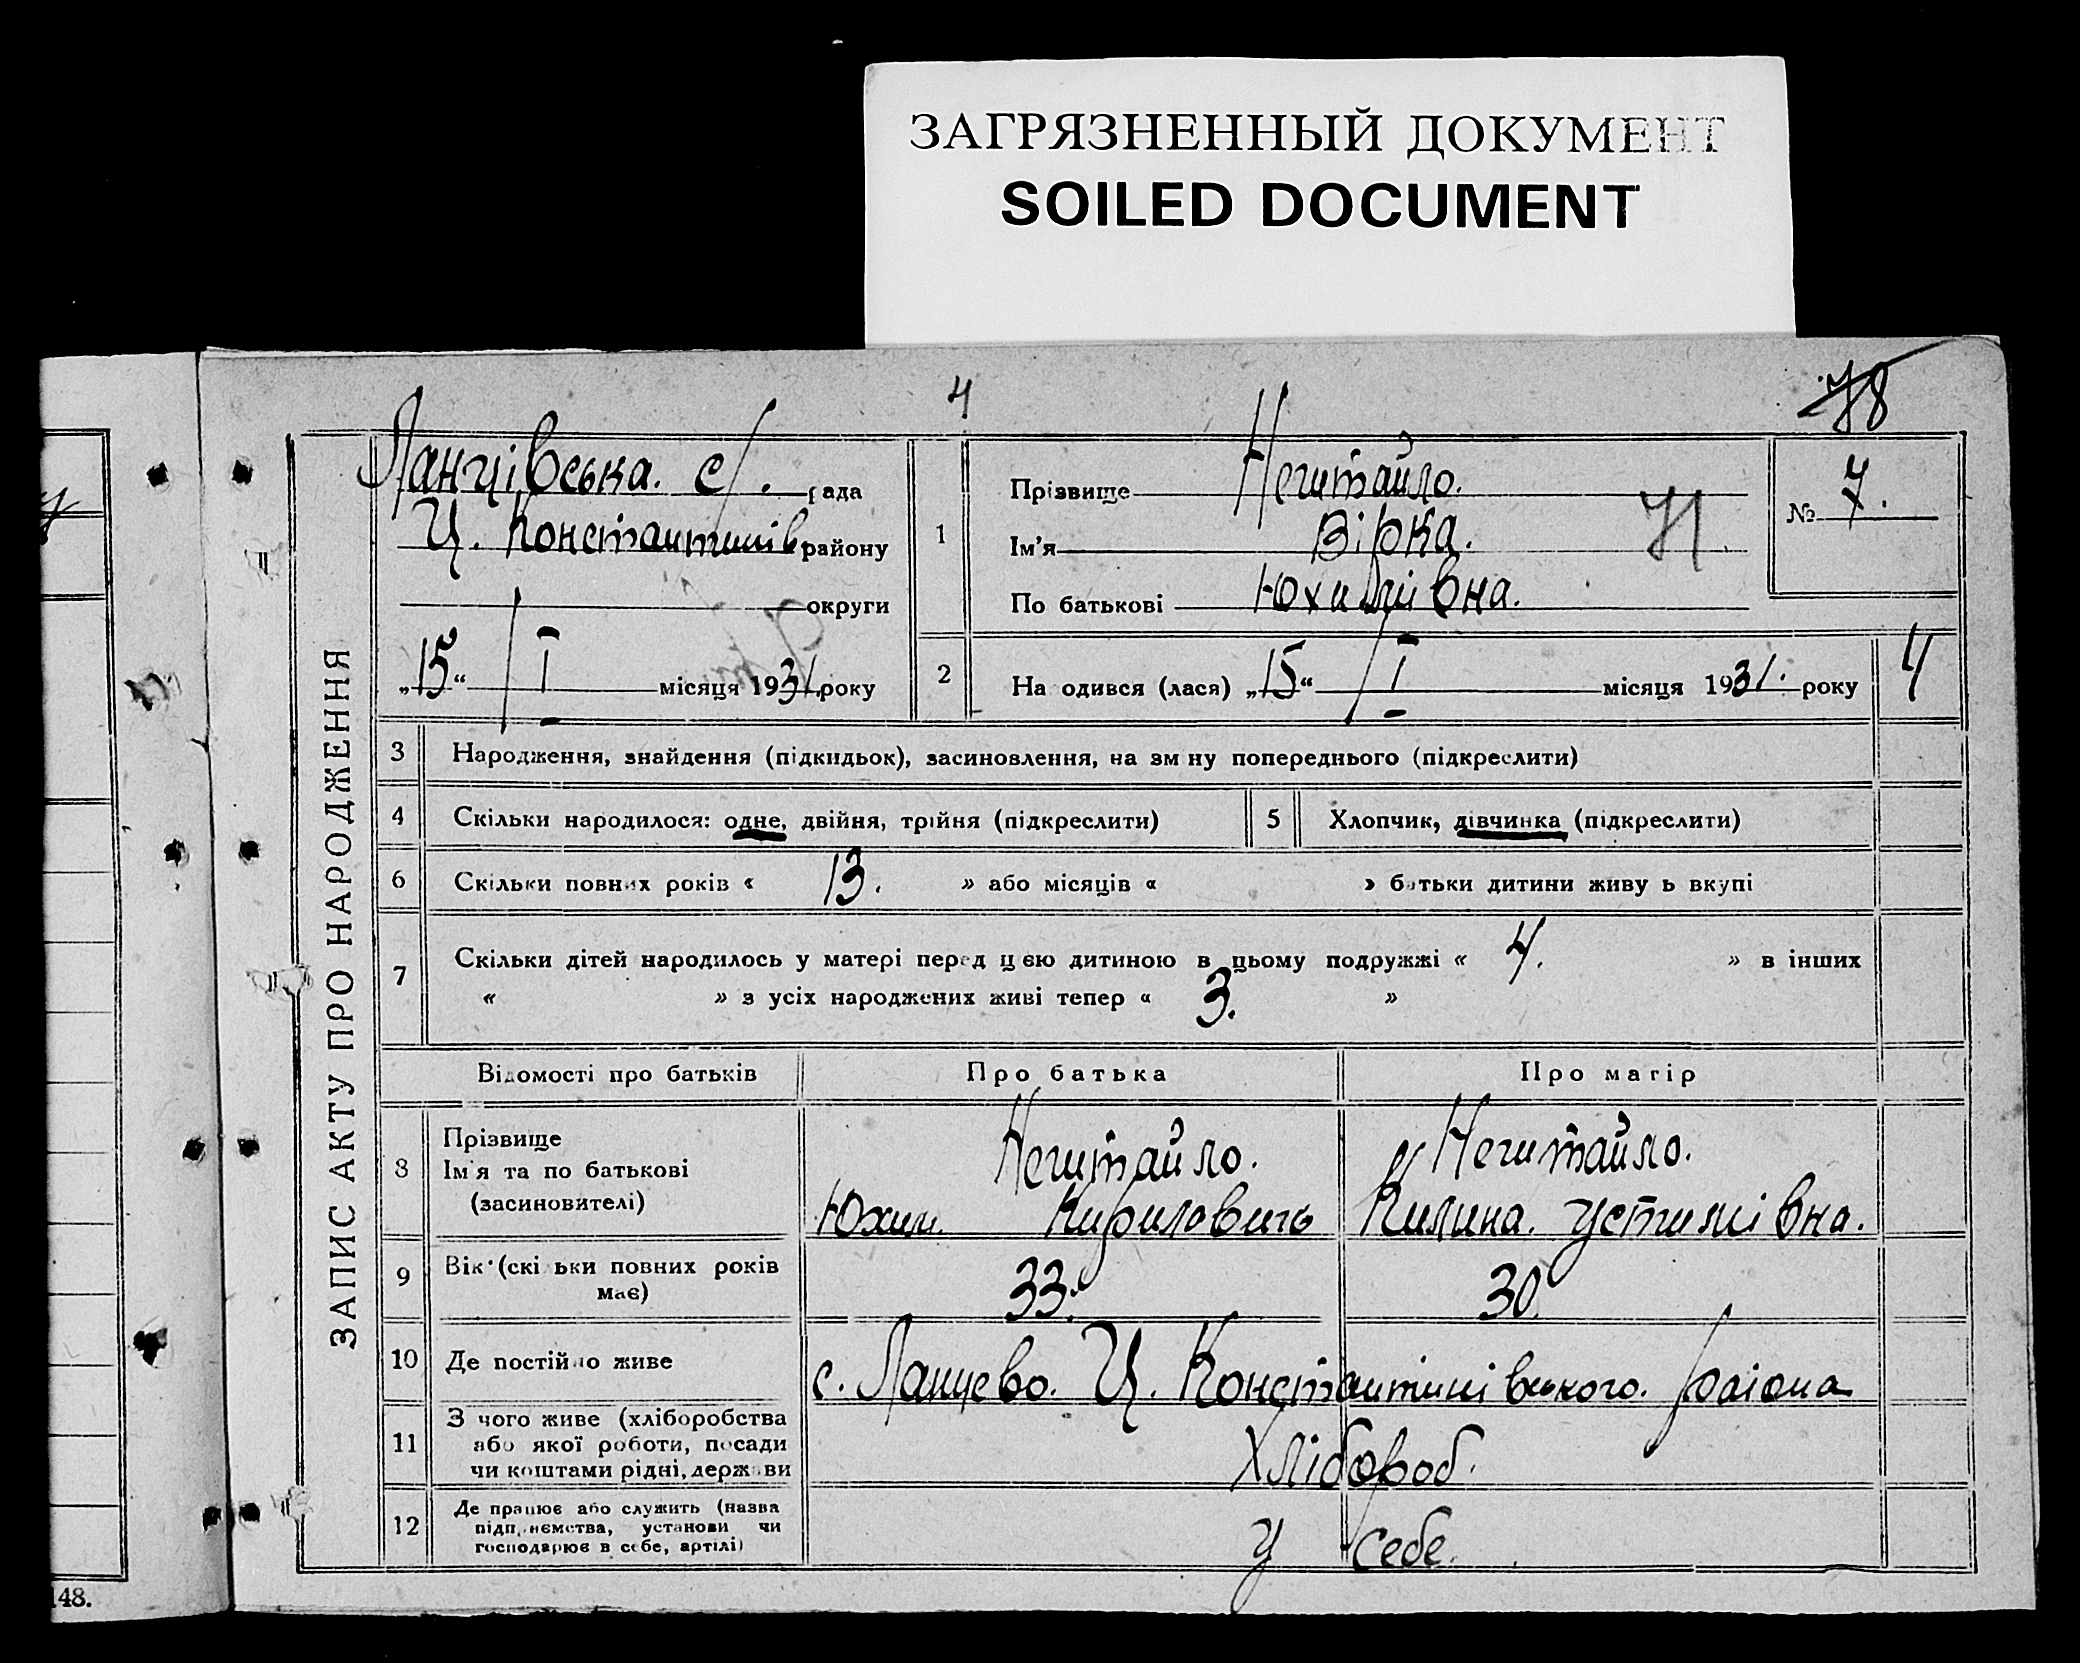 ЗАГРЯЗНЕННЫЙ ДОКУМЕНТ
SOILED DOCUMENT
4
78
ЗАПИС АКТУ ПРО НАРОДЖЕННЯ
Ланцівська. с/. рада
Ц. Константинів району
округи
„15“ I місяця 1931 року
1
Прізвище Негштайло.
Ім'я Вірка.
По батькові Юхимівна.
71
№ 7.
2 На одився (лася) „15“ I місяця 1931. року
4
3 Народження, знайдення (підкидьок), засиновлення, на зм ну попереднього (підкреслити)
4 Скільки народилося: одне, двійня, трійня (підкреслити) 5 Хлопчик, дівчинка (підкреслити)
6 Скільки повних років « 13. » або місяців « » батьки дитини живу ь вкупі
7 Скільки дітей народилось у матері перед цією дитиною в цьому подружжі « 4. » в інших
« » з усіх народжених живі тепер « 3. »
Відомості про батьків Про батька Про матір
8 Прізвище
Ім'я та по батькові
(засиновителі)
Негштайло. Негштайло.
Юхим. Кирилович Килина. Устимівна.
9 Вік (скі ьки повних років
має)
33. 30.
10 Де постійно живе с. Ланцево. Ц. Константинівського. раіона
11 З чого живе (хліборобства
або якої роботи, посади
чи коштами рідні, держави
Хлібороб.
12 Де працює або служить (назва
підприємства, установи чи
господарює в себе, артілі)
у себе.
148.